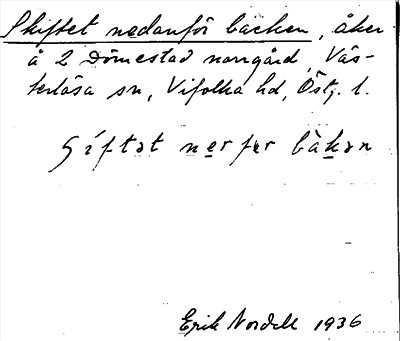 Skiftet nedanför bäcken, åker
å 2 Dömestad norrgård, Väs-
terlösa sn, Vifolka hd, Östg. l.
ʃíftət nerfər bàkən
Erik Nordell 1936